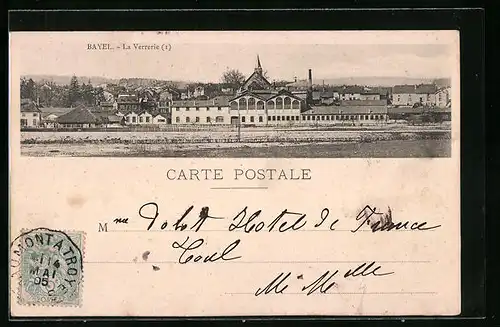 BAYEL. - La Verrerie (1)
CARTE POSTALE
Mme Dolot Hotel De France
Toul
Mthe Mlle
MONTATROYE
11 4
MAI
05